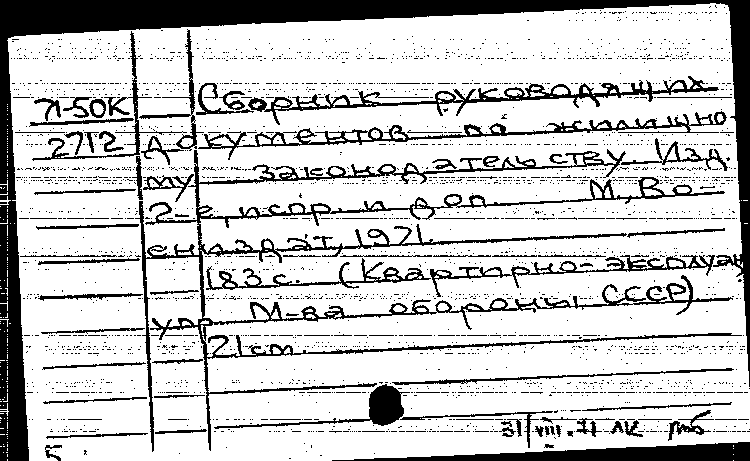 71-50К Сборник руководящих
2712 документов по жилищно-
му законодательству. Изд.
2-е, испр. и доп. М., Во-
ениздат, 1971.
183 с. (Квартирно-эксплуат
упр. М-ва обороны СССР)
21 см.
31/VIII.71 ЛК
Б